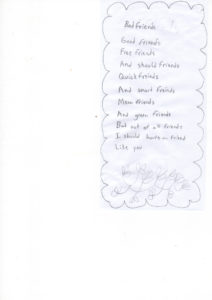 Bad friends !
Good friends
Free friends
And should friends
Quick freinds
And smart friends
Mean friends
And green friends
But out of all friends
I should have a friend
Like you